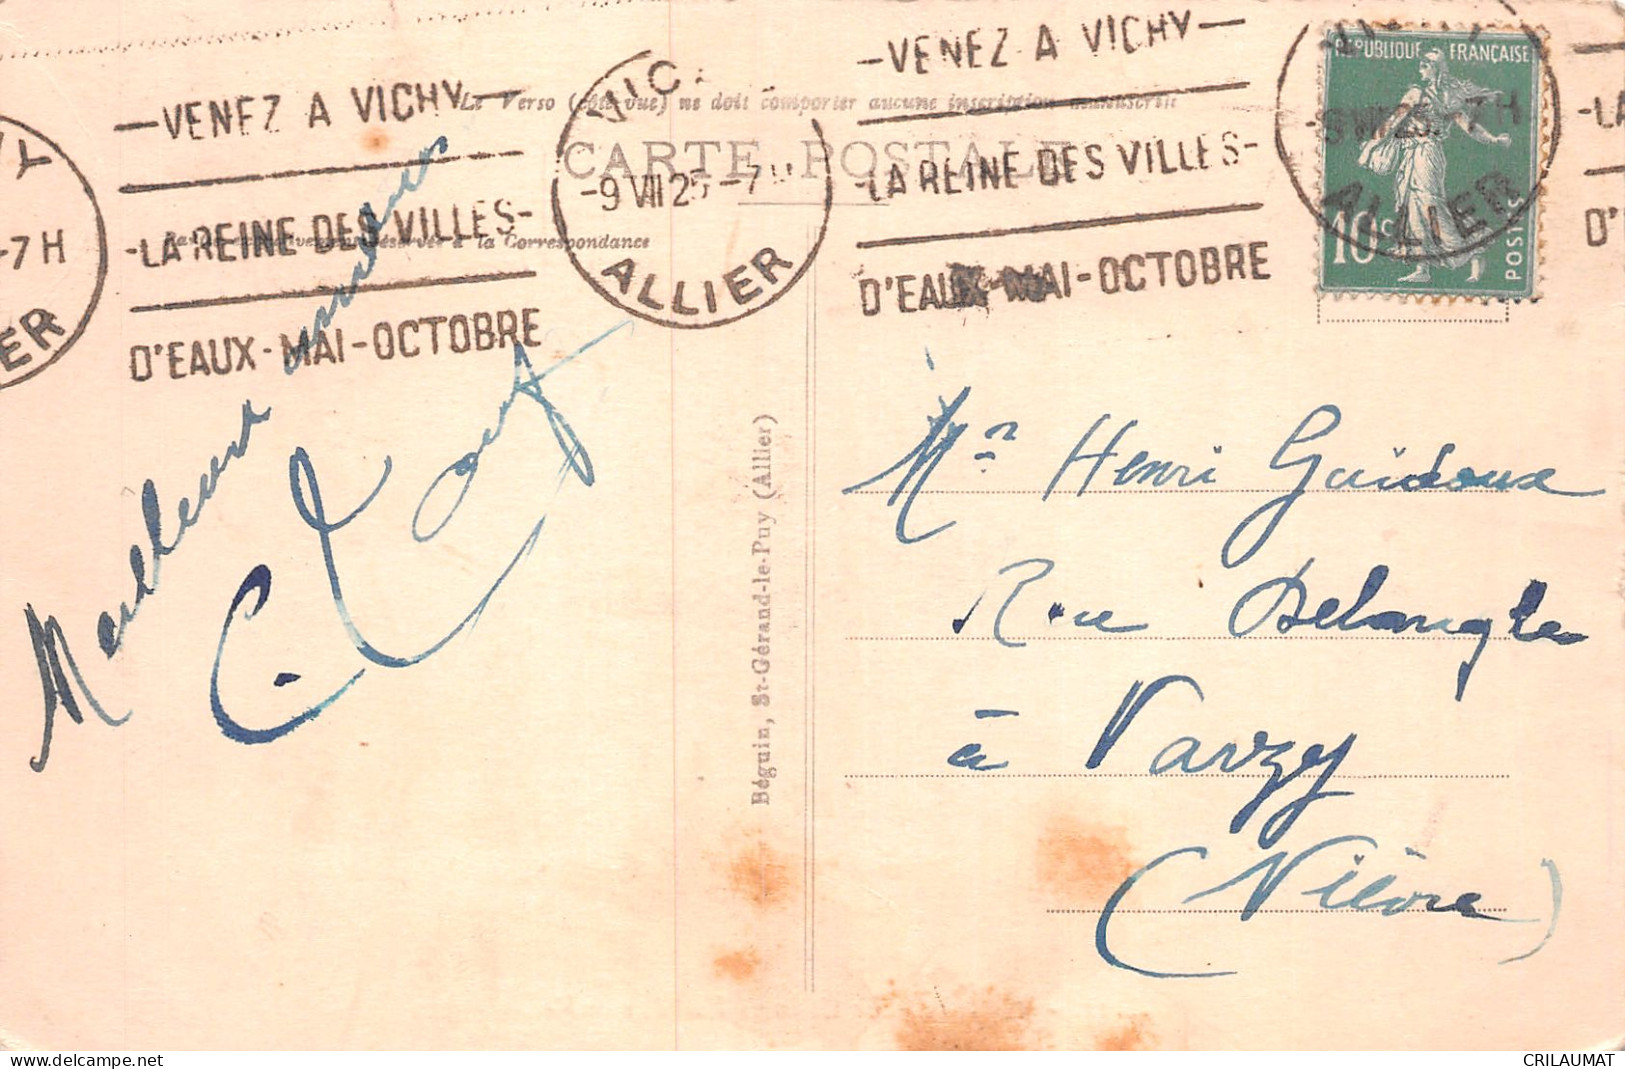 —VENEZ A VICHY—
-LA REINE DES VILLES-
D'EAUX-MAI-OCTOBRE
Y
-7 H
ER
VIC
-9 VII 25 -7
ALLIER
—VENEZ A VICHY—
-LA REINE DES VILLES-
D'EAUX-MAI-OCTOBRE
-9 VII 25 -7 H
ALLIER
-LA
D'
RÉPUBLIQUE FRANÇAISE
10c
POSTES
Le Verso (côté vue) ne doit comporter aucune inscription manuscrite
CARTE POSTALE
réservée à la Correspondance
Meilleurs souvenirs
Béguin, St-Gérand-le-Puy (Allier)
Mr Henri Guidoux
Rue Delangle
à Varzy
(Nièvre)
delcampe.net
CRILAUMAT